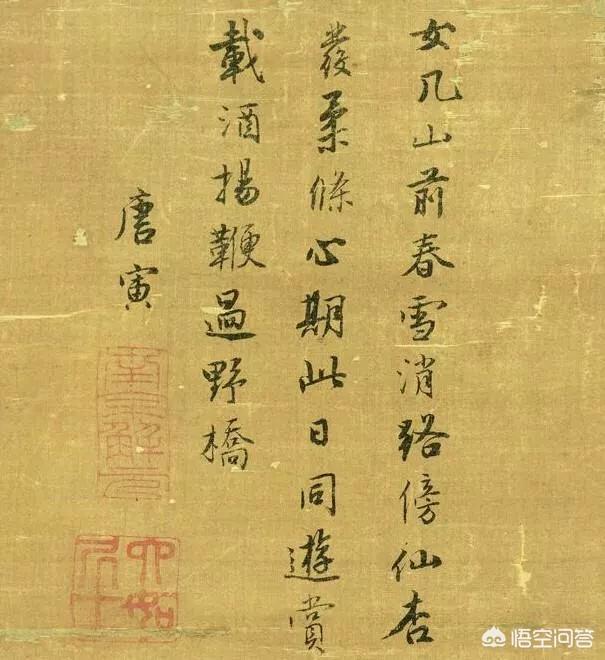 女几山前春雪消路傍仙杏
發柔條心期此日同遊賞
載酒揚鞭過野橋
唐寅
南京解元
六如居士
悟空问答